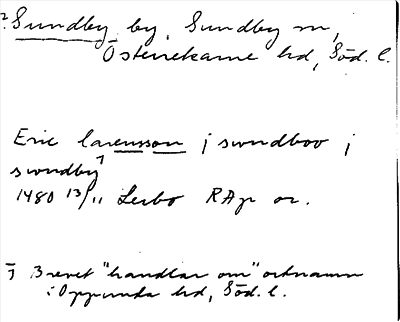 ? Sundby by, Sundby sn,
Österrekarne hd, Söd. l.
Eric larensson j swndboo j
swndby 1
1480 13/11 Lerbo RAp or.
1 Brevet "handlar om" ortnamn
i Oppunda hd, Söd. l.